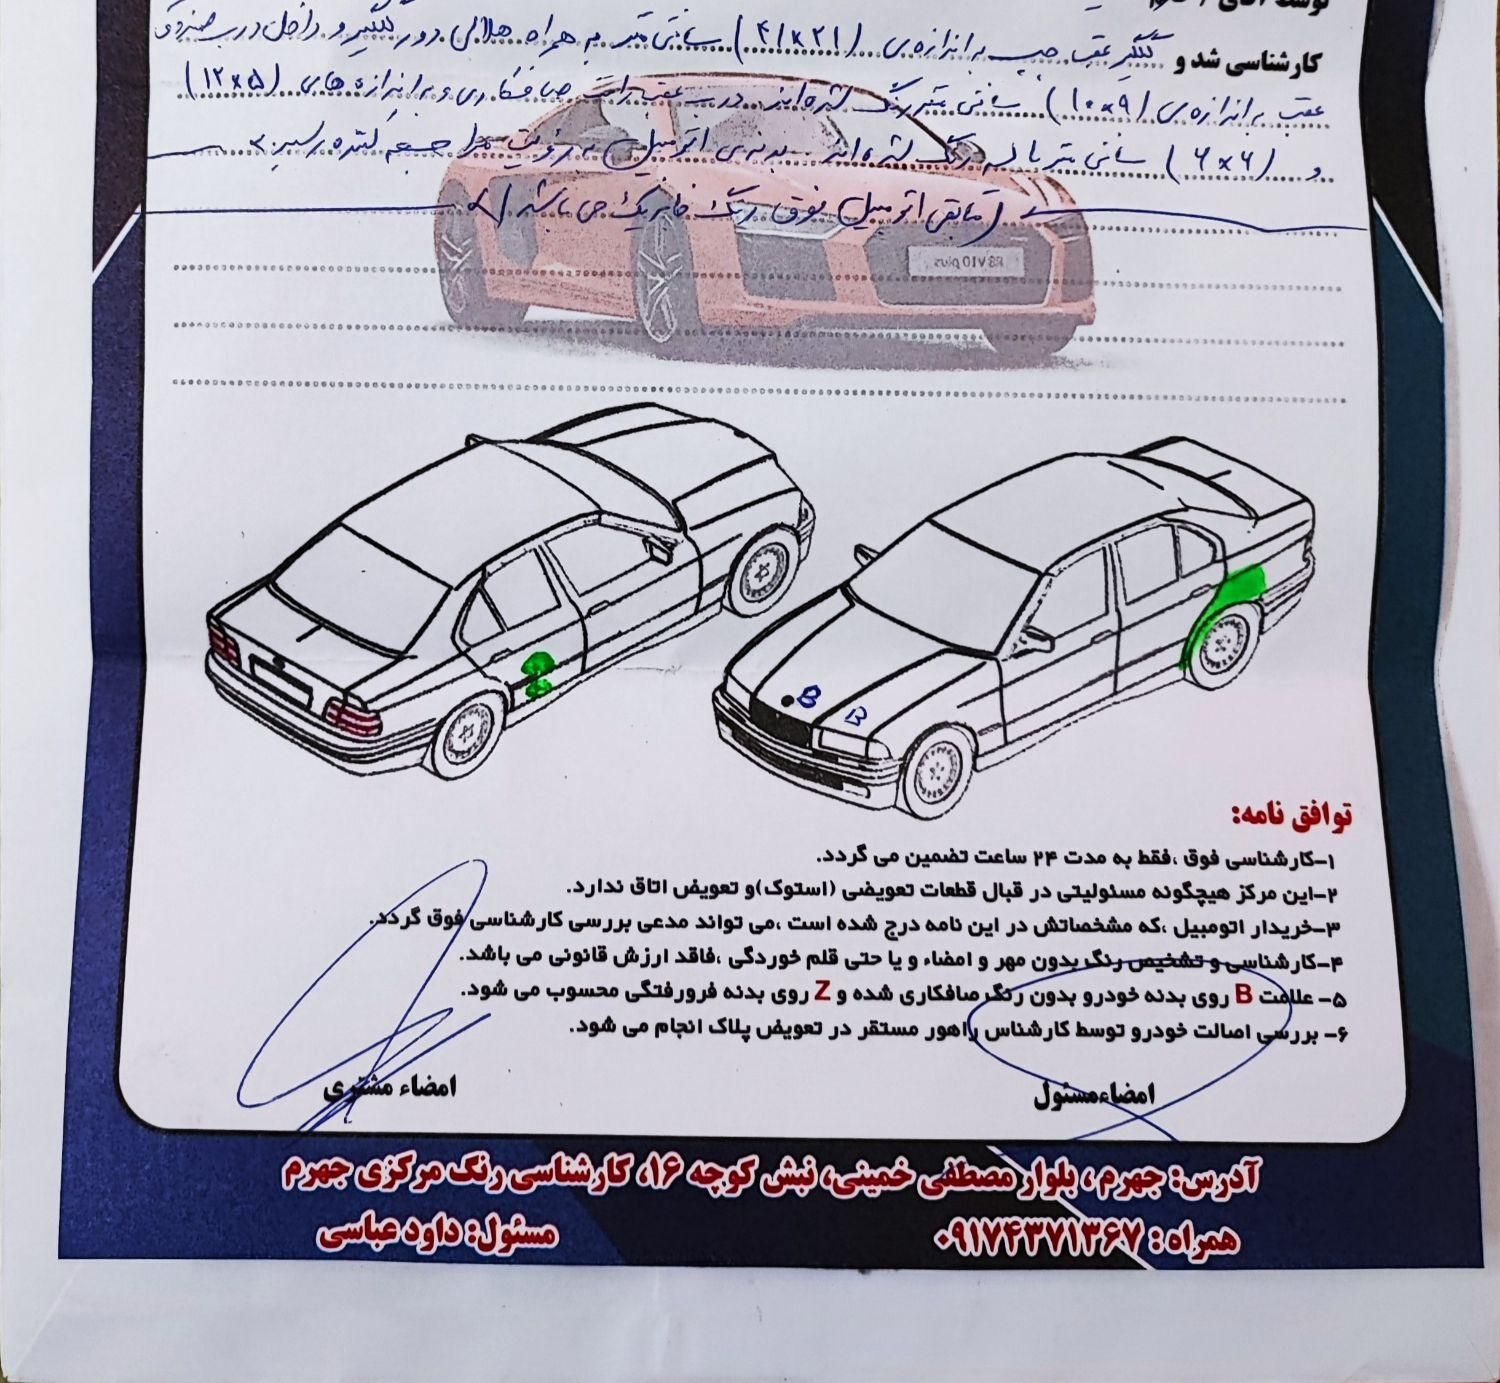 کارشناسی شد و گلگیر عقب چپ به اندازه‌ی (۴۱×۲۱) سانتی متر به همراه هلالی دور گلگیر و داخل درب صندوق
عقب به اندازه‌ی (۱۰×۹) سانتی متر رنگ شده‌اند. درب عقب راست صافکاری و به اندازه های (۱۲×۵)
و (۶×۶) سانتی متر رنگ شده‌اند. بدنه‌ی اتومبیل به رؤیت
(مابقی اتومبیل فوق رنگ فابریک می باشد)
R8 V10 plus
B B
توافق نامه:
۱-کارشناسی فوق ،فقط به مدت ۲۴ ساعت تضمین می گردد.
۲-این مرکز هیچگونه مسئولیتی در قبال قطعات تعویضی (استوک)و تعویض اتاق ندارد.
۳-خریدار اتومبیل ،که مشخصاتش در این نامه درج شده است ،می تواند مدعی بررسی کارشناسی فوق گردد.
۴-کارشناسی و تشخیص رنگ بدون مهر و امضاء و یا حتی قلم خوردگی ،فاقد ارزش قانونی می باشد.
۵- علامت B روی بدنه خودرو بدون رنگ صافکاری شده و Z روی بدنه فرورفتگی محسوب می شود.
۶- بررسی اصالت خودرو توسط کارشناس راهور مستقر در تعویض پلاک انجام می شود.
امضاءمسئول
امضاء مشتری
آدرس: جهرم ، بلوار مصطفی خمینی، نبش کوچه ۱۶، کارشناسی رنگ مرکزی جهرم
همراه : ۰۹۱۷۴۳۷۱۳۶۷
مسئول: داود عباسی